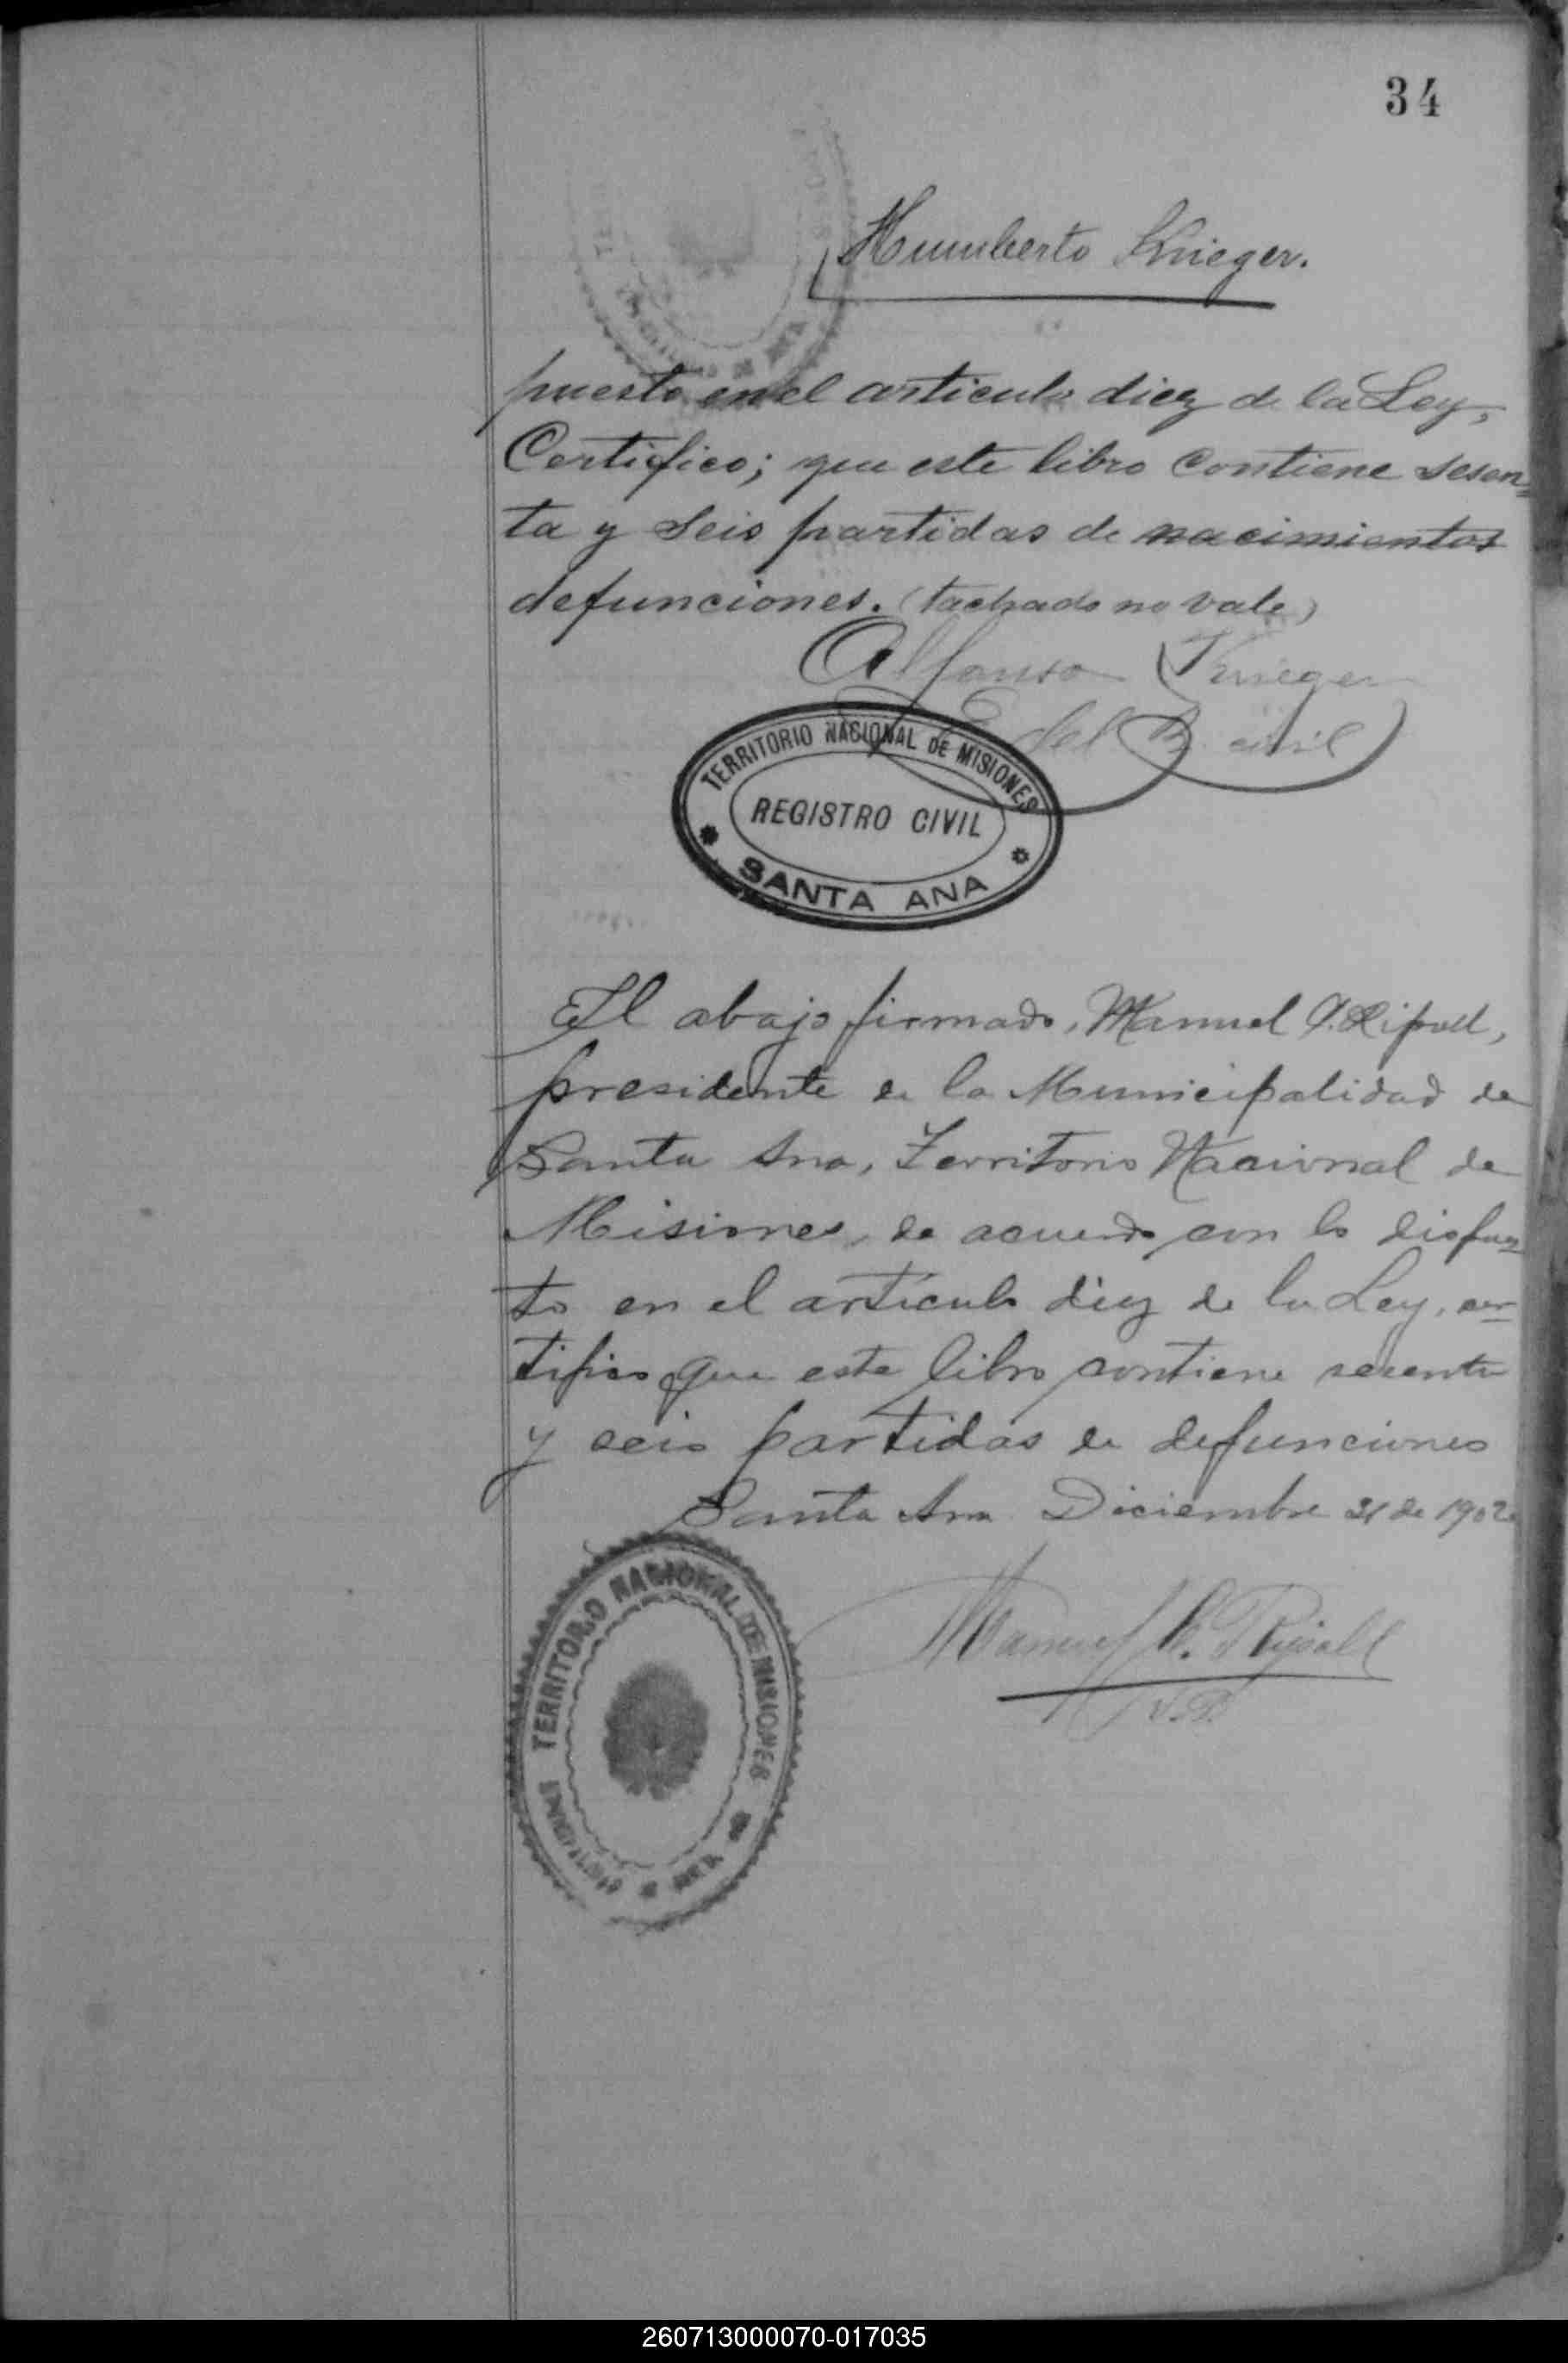 34
Humberto Krieger.
puesto en el articulo diez de la Ley,
Certifico; que este libro contiene sesen-
ta y seis partidas de nacimientos
defunciones. (tachado no vale)
Alfonso Krieger
E del R. civil
TERRITORIO NACIONAL DE MISIONES
REGISTRO CIVIL
SANTA ANA
El abajo firmado, Manuel Ripoll,
presidente de la Municipalidad de
Santa Ana, Territorio Nacional de
Misiones, de acuerdo con lo dispues-
to en el artículo diez de la Ley, cer-
tifico que este libro contiene sesenta
y seis partidas de defunciones
Santa Ana Diciembre 31 de 1902
TERRITORIO NACIONAL DE MISIONES
ANA
Manuel Ripoll
260713000070-017035